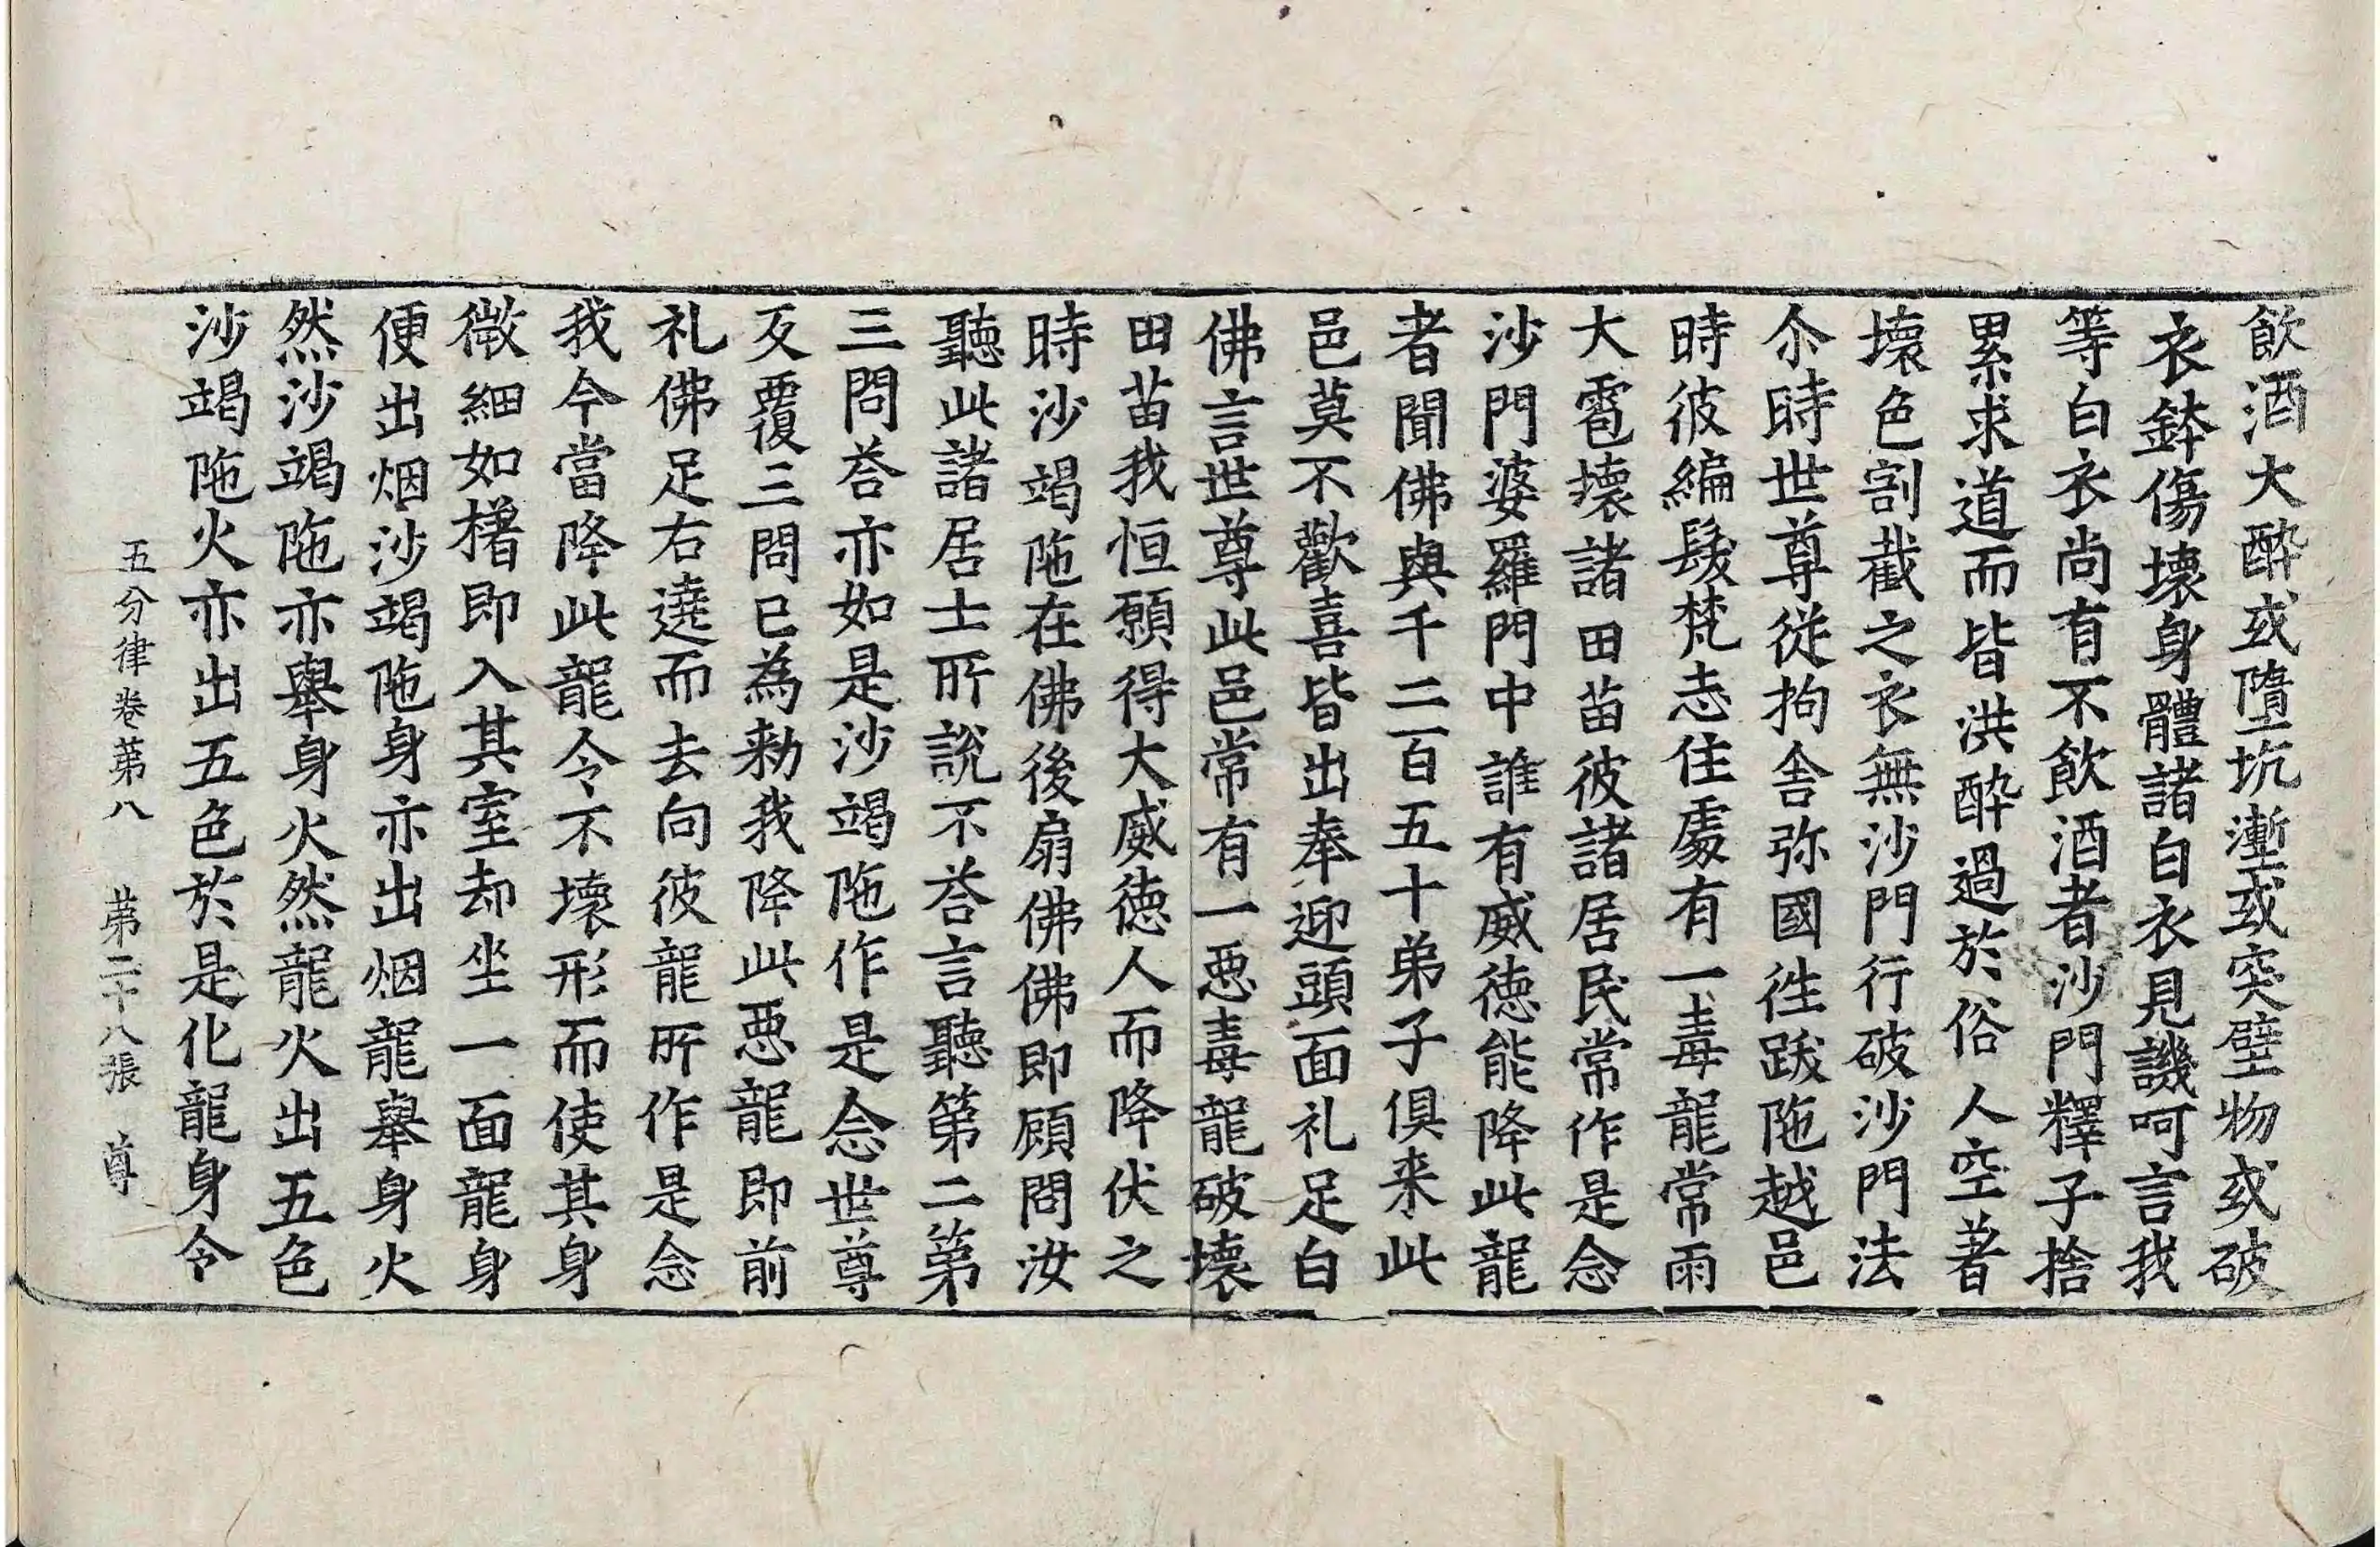 飲酒大醉或墮坑壍或突壁物或破
衣鉢傷壞身體諸白衣見譏呵言我
等白衣尚有不飲酒者沙門釋子捨
累求道而皆洪醉過於俗人空著
壞色割截之衣無沙門行破沙門法
尒時世尊從拘舍弥國徃跋陁越邑
時彼編髮梵志住處有一毒龍常雨
大雹壞諸田苗彼諸居民常作是念
沙門婆羅門中誰有威徳能降此龍
者聞佛與千二百五十弟子俱来此
邑莫不歡喜皆出奉迎頭面礼足白
佛言世尊此邑常有一惡毒龍破壞
田苗我恒願得大威徳人而降伏之
時沙竭陁在佛後扇佛佛即顧問汝
聽此諸居士所說不荅言聽第二第
三問荅亦如是沙竭陁作是念世尊
反覆三問已為勑我降此惡龍即前
礼佛足右遶而去向彼龍所作是念
我今當降此龍令不壞形而使其身
微細如櫡即入其室却坐一面龍身
便出烟沙竭陁身亦出烟龍舉身火
然沙竭陁亦舉身火然龍火出五色
沙竭陁火亦出五色於是化龍身令
五分律卷第八 第二十八張 尊